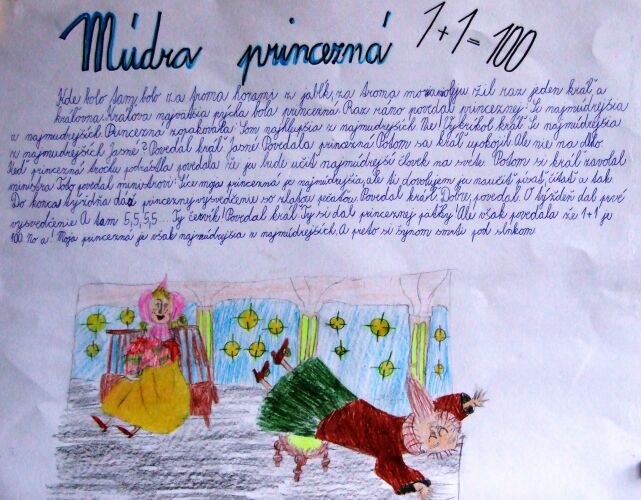 Múdra princezná 1+1=100
Kde bolo tam bolo za troma horami z jabĺk, za troma morami žil raz jeden kráľ a
kráľovná. Kráľova najväčšia pýcha bola princezná. Raz ráno povedal princeznej: Si najmúdrejšia
z najmúdrejších. Princezná zopakovala: Som najhlúpšia z najmúdrejších. Nie! Vykríkol kráľ. Si najmúdrejšia
z najmúdrejších. Jasné? Povedal kráľ. Jasné. Povedala princezná. Potom sa kráľ upokojil. Ale nie na dlho.
Keď princezná trochu podrástla povedala že ju bude učiť najmúdrejší človek na svete. Potom si kráľ zavolal
ministra. Takto povedal ministrovi: Síce moja princezná je najmúdrejšia, ale ti dovoľujem ju naučiť písať, čítať a tak.
Do konca týždňa daj princeznej vysvedčenie so zlatou pečaťou. Povedal kráľ. Dobre, povedal. O týždeň dal prvé
vysvedčenie. A tam 5,5,5,5... Ty červík! Povedal kráľ. Ty si dal princeznej päťky! Ale však povedala že 1+1 je
100. No a! Moja princezná je však najmúdrejšia z najmúdrejších. A preto si synom smrti pod slnkom.